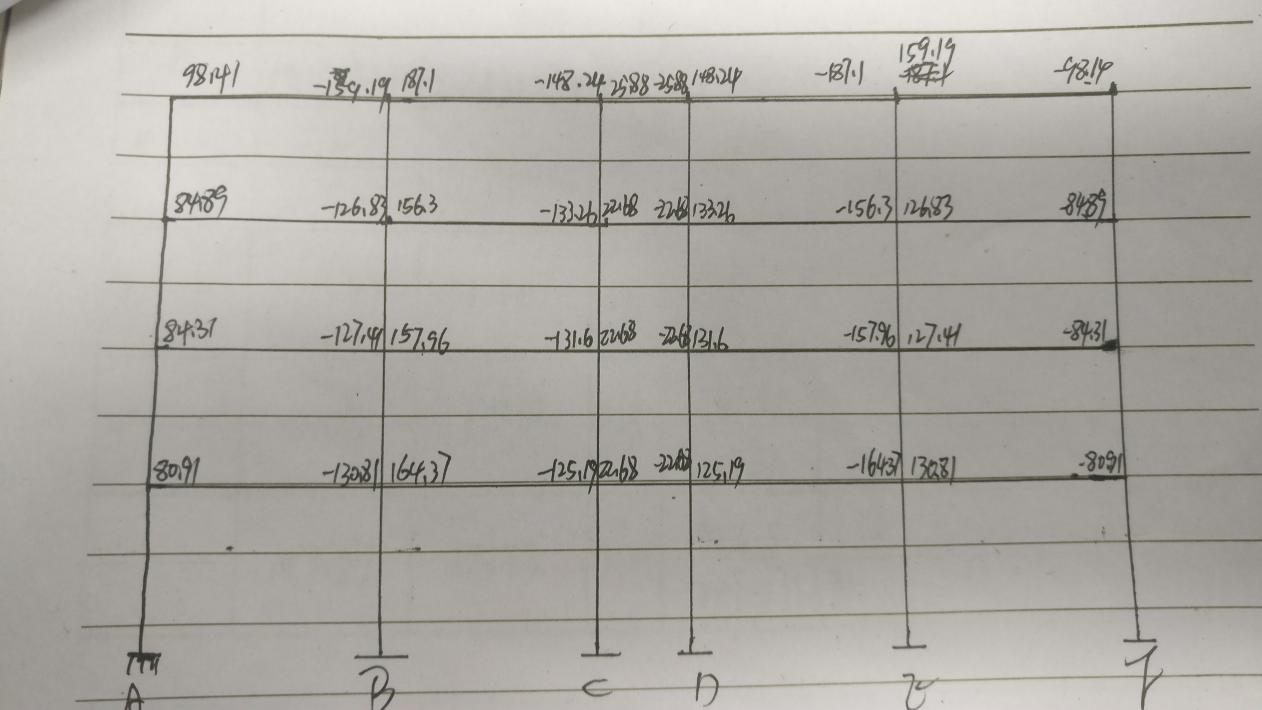 98.41 -159.19 187.1 -148.24 25.88 -25.88 148.24 -187.1 159.19 -98.19
84.89 -126.83 156.3 -133.26 22.68 -22.68 133.26 -156.3 126.83 -84.89
84.37 -127.41 157.96 -131.6 22.68 -22.68 131.6 -157.96 127.41 -84.31
80.91 -130.81 164.37 -125.19 22.68 -22.68 125.19 -164.37 130.81 -80.91
A B C D E F